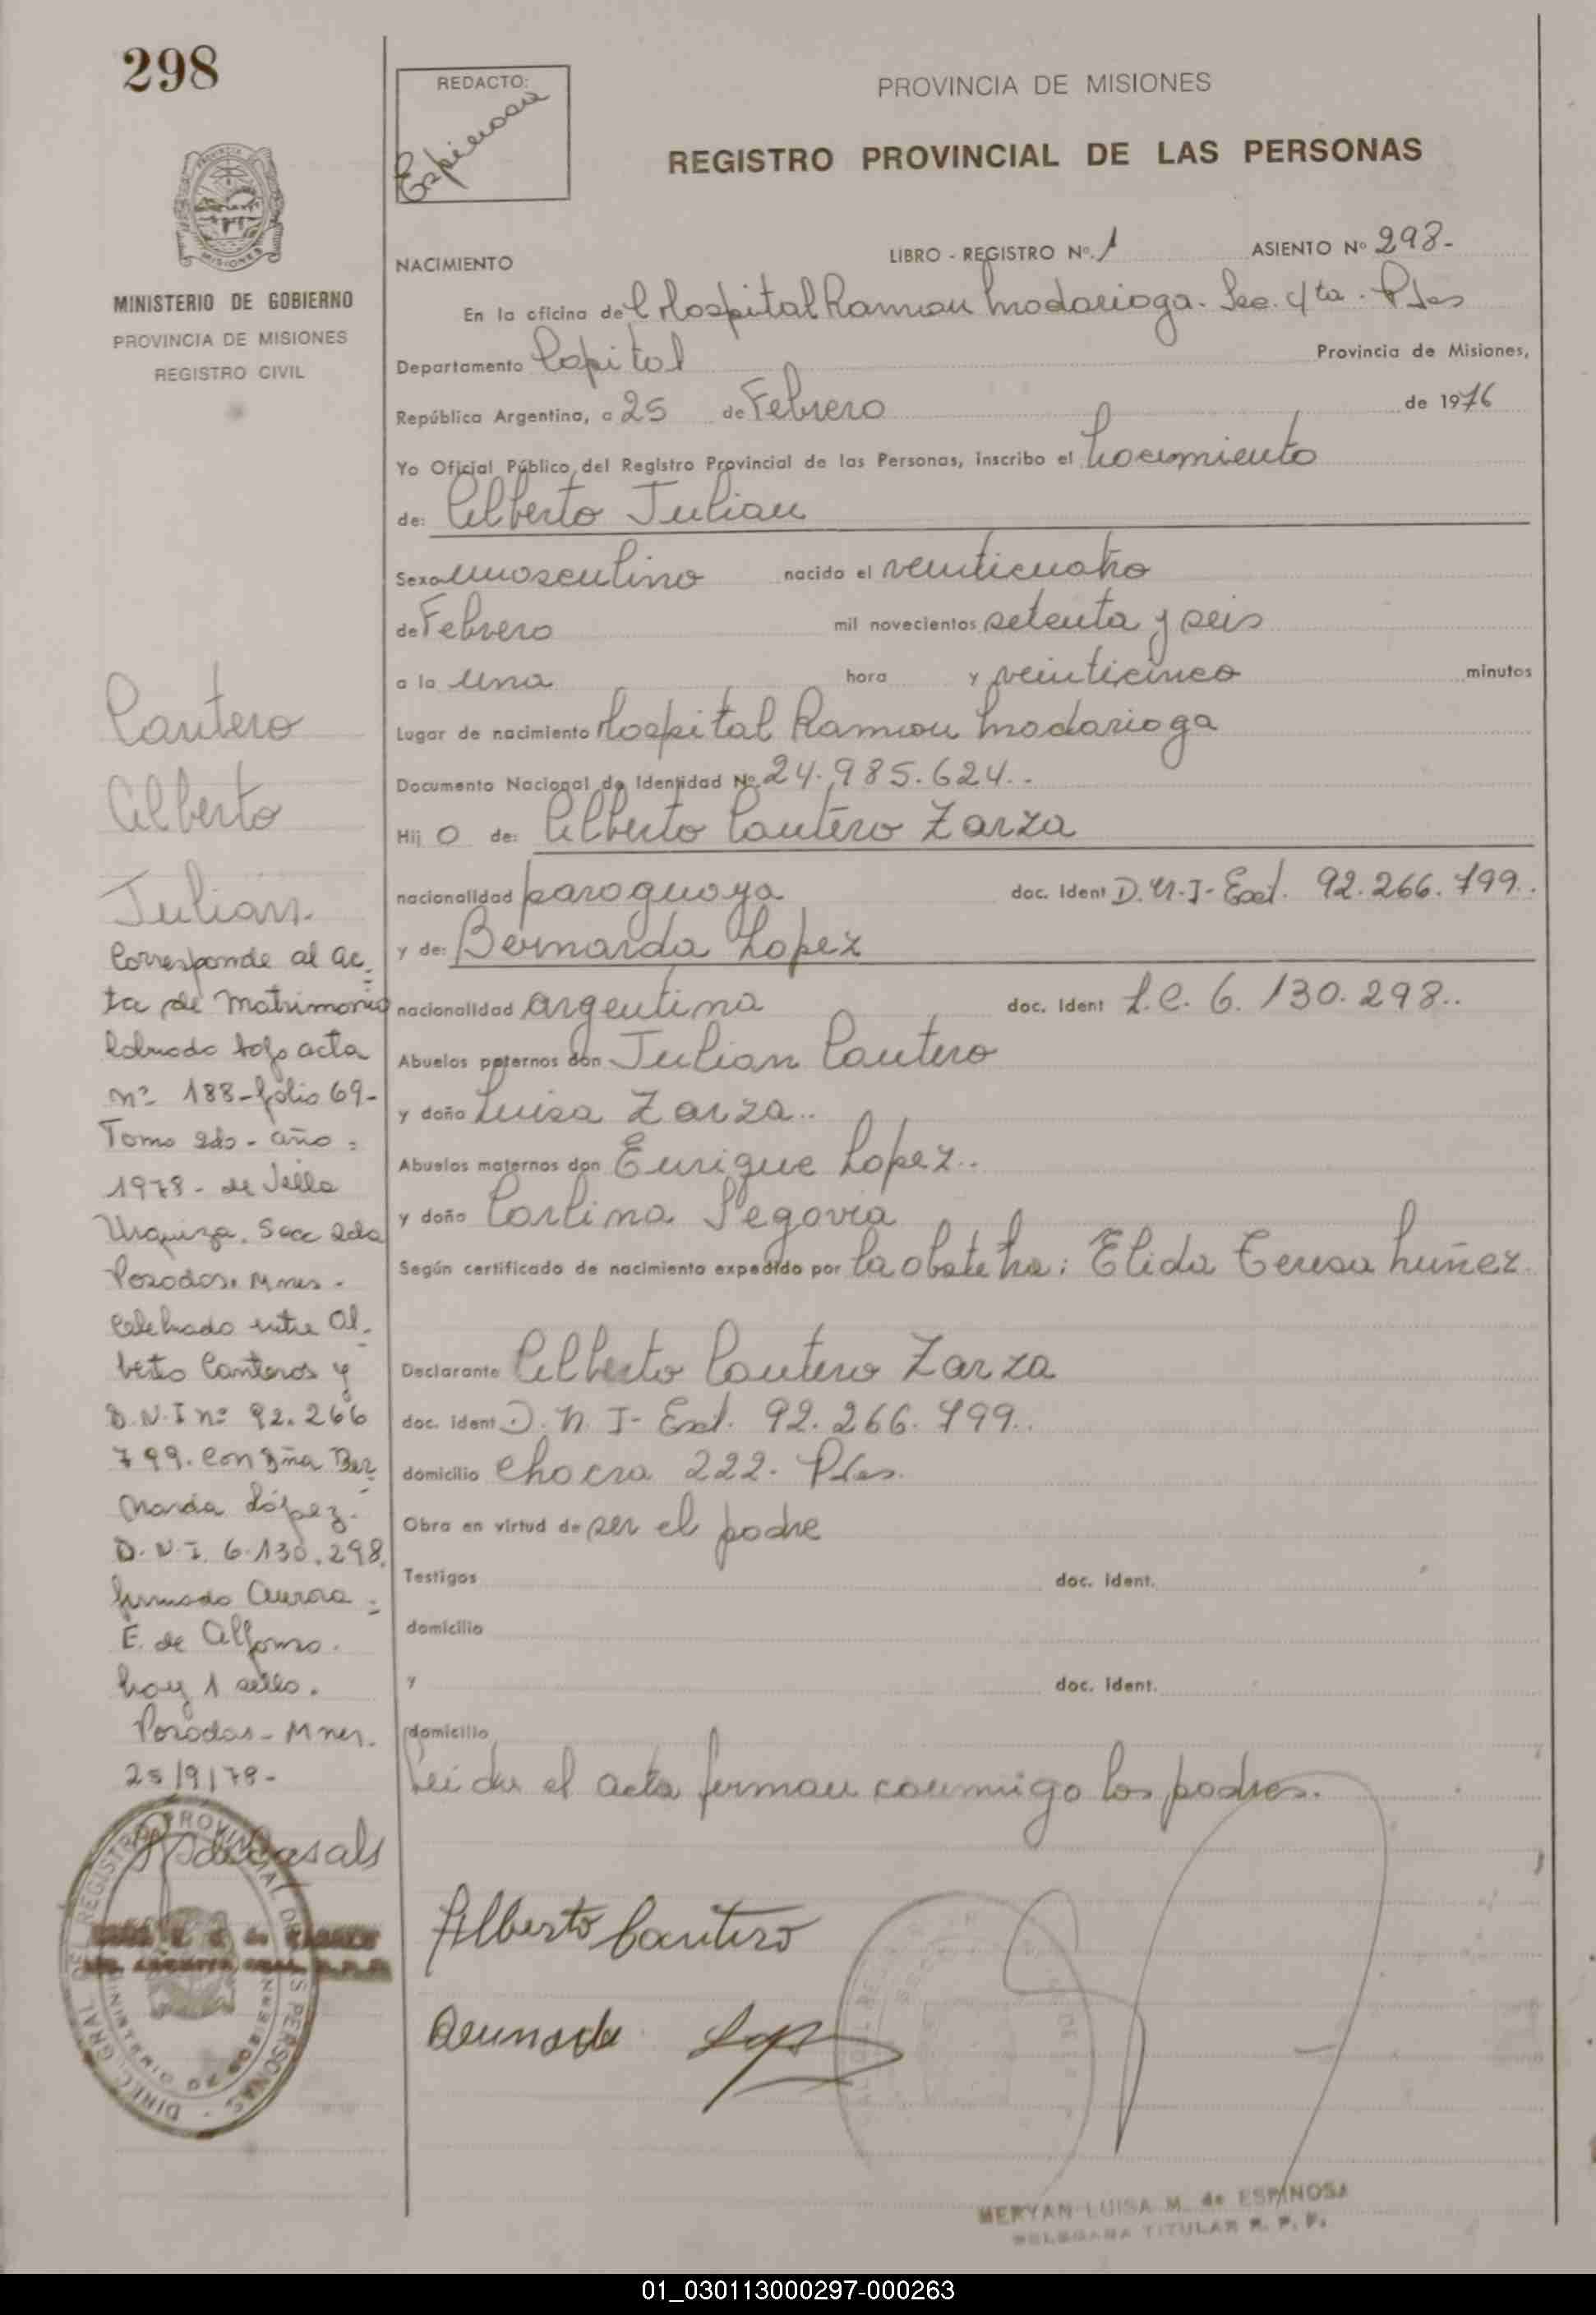 298
REDACTO:
Espinosa
PROVINCIA DE MISIONES
REGISTRO PROVINCIAL DE LAS PERSONAS
MINISTERIO DE GOBIERNO
PROVINCIA DE MISIONES
REGISTRO CIVIL
NACIMIENTO
LIBRO - REGISTRO Nº. 1
ASIENTO Nº 298-
En la oficina del Hospital Ramon Madariaga. Sec. 4ta. Pdas
Departamento Capital Provincia de Misiones,
República Argentina, a 25 de Febrero de 1976
Yo Oficial Público del Registro Provincial de las Personas, inscribo el nacimiento
de: Alberto Julian
Sexo masculino nacido el veinticuatro
de Febrero mil novecientos setenta y seis
a la una hora y veinticinco minutos
Lugar de nacimiento Hospital Ramon Madariaga
Documento Nacional de Identidad Nº 24.985.624..
Hij o de: Alberto Cantero Zarza
nacionalidad paraguaya doc. Ident D.N.I- Ext. 92.266.799..
y de: Bernarda Lopez
nacionalidad argentina doc. Ident L.C. 6.130.298..
Abuelos paternos don Julian Cantero
y doña Luisa Zarza..
Abuelos maternos don Enrique Lopez..
y doña Carlina Segovia
Según certificado de nacimiento expedido por la obstetra: Elida Teresa Nuñez.
Declarante Alberto Cantero Zarza
doc. ident D.N.I- Ext. 92.266.799..
domicilio Chacra 222. Pdas.
Obra en virtud de ser el padre
Testigos doc. ident.
domicilio
y doc. ident.
domicilio
Leida el acta firman conmigo los padres.
Alberto Cantero
Bernarda Lopez
MERYAN LUISA M. de ESPINOSA
DELEGADA TITULAR R. P. P.
Cantero
Alberto
Julian.
Corresponde al ac-
ta de Matrimonio
Labrado bajo acta
nº 188-folio 69-
Tomo 2do - año -
1978 - de Villa
Urquiza. Secc 2da
Posadas. Mnes -
Celebrado entre Al-
berto Canteros y
D.N.I nº 92.266
799. Con Dña Ber-
narda López.
D.N.I. 6.130.298.
firmado Aurora -
E. de Alfonso.
hay 1 sello.
Posadas - Mnes.
25/9/79-
de Casals
DIREC. GRAL. DEL REGISTRO PROVINCIAL DE LAS PERSONAS -
MINISTERIO DE GOBIERNO
01_030113000297-000263